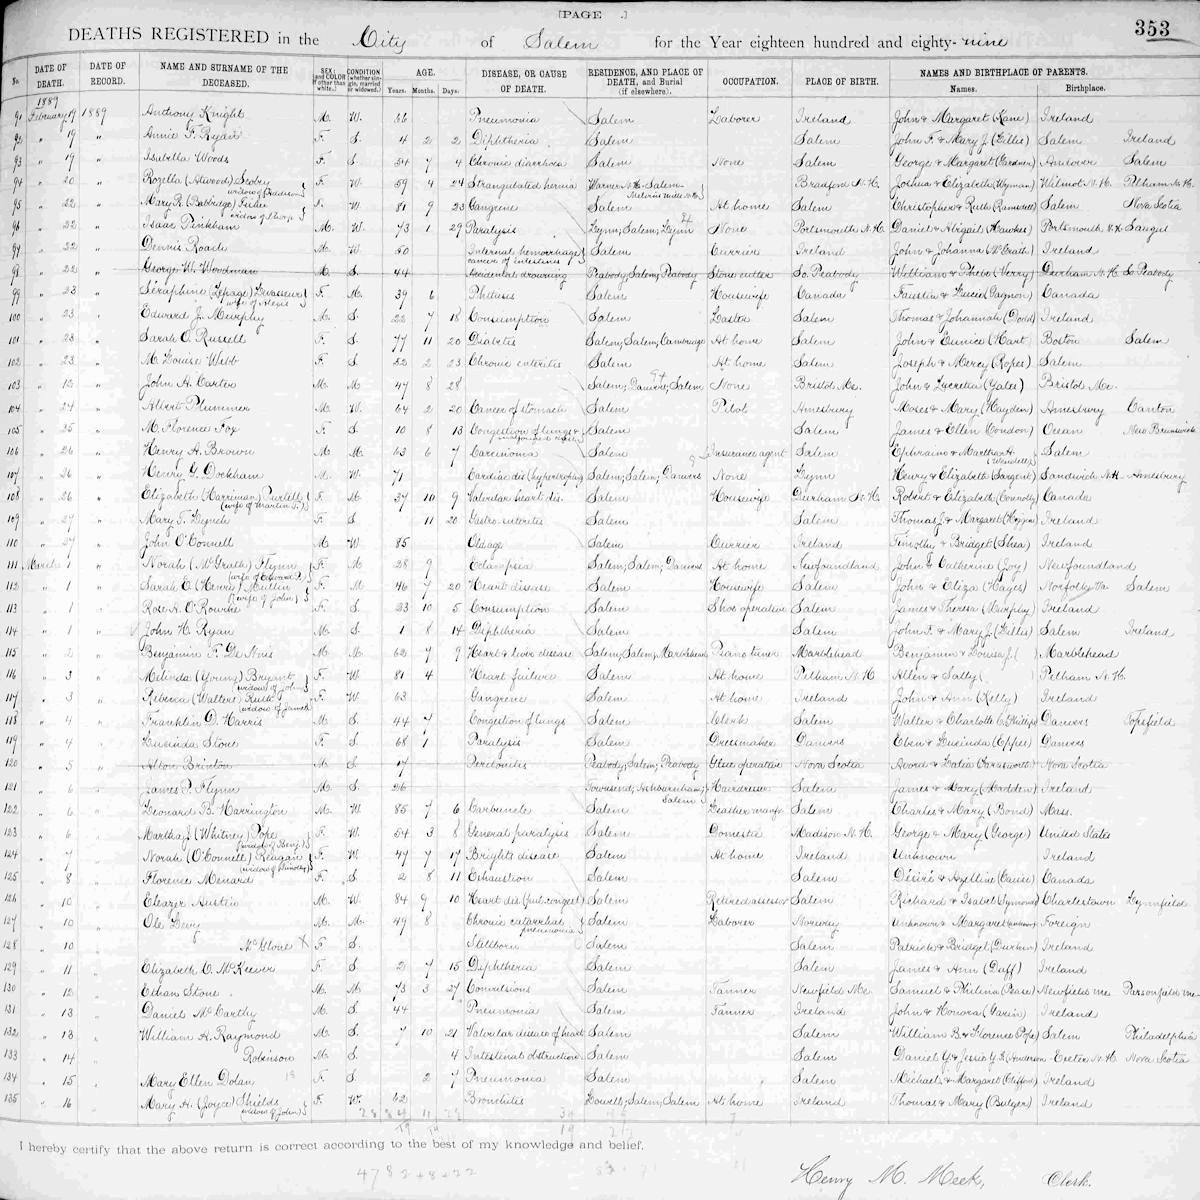 [PAGE .]
353
DEATHS REGISTERED in the City of Salem for the Year eighteen hundred and eighty-nine
No. DATE OF DEATH. DATE OF RECORD. NAME AND SURNAME OF THE DECEASED. SEX; and COLOR (if other than white.) CONDITION (whether single, married or widowed.) AGE. Years. Months. Days. DISEASE, OR CAUSE OF DEATH. RESIDENCE, AND PLACE OF DEATH, and Burial (if elsewhere). OCCUPATION. PLACE OF BIRTH. NAMES AND BIRTHPLACE OF PARENTS. Names. Birthplace.
1889
91 February 19 1889 Anthony Knight M. W. 66 Pneumonia Salem Laborer Ireland John & Margaret (Kane) Ireland
92 " 19 " Annie F. Ryan F. S. 4 2 2 Diphtheria Salem Salem John F. & Mary J. (Lillis) Salem Ireland
93 " 19 " Isabella Woods F. S. 54 7 4 Chronic diarrhoea Salem None Salem George & Margaret (Gardner) Andover Salem
94 " 20 " Rozella (Atwood) Scobey F. W. 59 4 24 Strangulated hernia Warner N.H. Salem Bradford N.H. Joshua & Elizabeth (Wyman) Wilmot N.H. Pelham N.H.
95 " 22 " Mary R. (Babbidge) Fisher F. W. 81 9 23 Gangrene Salem At home Salem Christopher & Ruth (Ramsdell) Salem Nova Scotia
96 " 22 " Isaac Pinkham M. W. 73 1 29 Paralysis Lynn; Salem; Lynn None Portsmouth N.H. Daniel & Abigail (Hawkes) Portsmouth N.H. Saugus
97 " 22 " Dennis Roach M. W. 50 Internal hemorrhage cancer of intestines Salem Currier Ireland John & Johanna (McGrath) Ireland
98 " 22 " George W. Woodman M. S. 44 Accidental drowning Peabody; Salem; Peabody Stone cutter So. Peabody William & Phebe (Verry) Durham N.H. So. Peabody
99 " 23 " Seraphine (Lepage) Levasseur (wife of Alexis) F. M. 39 6 Phthisis Salem Housewife Canada Faustin & Lucie (Gagnon) Canada
100 " 23 " Edward J. Murphy M. S. 22 7 18 Consumption Salem Laster Salem Thomas & Johannah (Dodd) Ireland
101 " 23 " Sarah O. Russell F. S. 77 11 20 Diabetes Salem; Salem; Cambridge At home Salem John & Eunice (Hart) Boston Salem
102 " 23 " M. Louise Webb F. S. 52 2 23 Chronic enteritis Salem At home Salem Joseph & Mercy (Ropes) Salem
103 " 12 " John A. Carter M. M. 47 8 28 Salem; Danvers; Salem None Bristol Me. John & Lucretia (Yates) Bristol Me.
104 " 24 " Albert Plummer M. W. 64 2 20 Cancer of stomach Salem Pilot Amesbury Moses & Mary (Hayden) Amesbury Canton
105 " 25 " M. Florence Fox F. S. 10 8 13 Congestion of lungs & Salem Salem James & Ellen (Condon) Ocean New Brunswick
106 " 26 " Henry A. Brown M. M. 63 6 7 Carcinoma Salem Insurance agent Salem Ephraim & Martha A. Salem
107 " 26 " Henry G. Dockham M. W. 71 Cardiac dis (hypertrophy) Salem; Salem; Danvers None Lynn Henry & Elizabeth (Sargent) Sandwich N.H. Amesbury
108 " 26 " Elizabeth (Harriman) Purtell (wife of Martin F.) F. M. 37 10 9 Valvular heart dis. Salem Housewife Durham N.H. Robert & Elizabeth (Connolly) Canada
109 " 27 " Mary T. Lynch F. S. 11 20 Gastro enteritis Salem Salem Thomas J. & Margaret (Heppin) Ireland
110 " 27 " John O'Connell M. W. 85 Old age Salem Currier Ireland Timothy & Bridget (Shea) Ireland
111 March 1 " Norah (McGrath) Flynn (wife of Edward P.) F. M. 28 9 Eclampsia Salem; Salem; Danvers At home Newfoundland John & Catherine (Joy) Newfoundland
112 " 1 " Sarah E. (Henry) Mullin (wife of John) F. M. 46 7 20 Heart disease Salem Housewife Salem John & Eliza (Hayes) Norfolk Va. Salem
113 " 1 " Rose A. O'Rourke F. S. 23 10 5 Consumption Salem Shoe operative Salem James & Theresa (Murphy) Ireland
114 " 1 " John H. Ryan M. S. 1 8 14 Diphtheria Salem Salem John F. & Mary J. (Lillis) Salem Ireland
115 " 2 " Benjamin F. De Nis M. M. 62 7 9 Heart & liver disease Salem; Salem; Marblehead Piano tuner Marblehead Benjamin & Louisa J. ( Marblehead
116 " 3 " Melinda (Young) Bryant (widow of John) F. W. 81 4 Heart failure Salem At home Pelham N.H. Allen & Sally ( ) Pelham N.H.
117 " 3 " Rebecca (Walters) Ruth (widow of James) F. W. 63 Gangrene Salem At home Ireland John & Ann (Kelly) Ireland
118 " 4 " Franklin D. Harris M. S. 44 7 Congestion of lungs Salem Clerk Salem Walter & Charlotte C. (Phillips) Danvers Topsfield
119 " 4 " Lucinda Stone F. S. 68 1 Paralysis Salem Dressmaker Danvers Eben & Lucinda (Eppes) Danvers
120 " 5 " Alton Brinton M. S. 17 Peritonitis Peabody; Salem; Peabody Glue operative Nova Scotia Avard & Latia (Farnsworth) Nova Scotia
121 " 6 " James P. Flynn M. S. 26 Townsend; Ashburnham; Salem Hairdresser Salem James & Mary (Madden) Ireland
122 " 6 " Leonard B. Harrington M. W. 85 7 6 Carbuncle Salem Leather manfr Salem Charles & Mary (Bond) Mass.
123 " 6 " Martha J. (Whitney) Pope (widow of Benj.) F. W. 54 3 8 General paralysis Salem Domestic Madison N.H. George & Mary (George) United States
124 " 7 " Norah (O'Connell) Reagan (widow of Timothy) F. W. 47 7 17 Brights disease Salem At home Ireland Unknown Ireland
125 " 8 " Florence Menard F. S. 2 8 11 Exhaustion Salem Salem Désiré & Azelline (Carier) Canada
126 " 10 " Eleazer Austin M. W. 84 9 10 Heart dis (pul. congest) Salem Retired assessor Salem Richard & Isabel (Symonds) Charlestown Lynnfield
127 " 10 " Ole Levy M. M. 49 8 Chronic catarrhal pneumonia Salem Laborer Norway Unknown & Margaret (unknown) Foreign
128 " 10 " McGlone X F S. Stillborn Salem Salem Patrick & Bridget (Durkin) Ireland
129 " 11 " Elizabeth C. McKeever F. S. 2 7 15 Diphtheria Salem Salem James & Ann (Duff) Ireland
130 " 12 " Ethan Stone M. M. 73 3 27 Convulsions Salem Tanner Newfield Me. Samuel & Philena (Pease) Newfield Me. Parsonfield Me.
131 " 13 " Daniel McCarthy M. S. 44 Pneumonia Salem Tanner Ireland John & Honora (Garin) Ireland
132 " 13 " William H. Raymond M. S. 7 10 21 Valvular disease of heart Salem Salem William B. & Florence (Pope) Salem Philadelphia
133 " 14 " Robinson M. S. 4 Intestinal obstruction Salem Salem Daniel Y. & Jessie Y. F. (Anderson Exeter N.H. Nova Scotia
134 " 15 " Mary Ellen Dolan F. S. 2 7 Pneumonia Salem Salem Michael & Margaret (Clifford) Ireland
135 " 16 " Mary A. (Joyce) Shields (widow of John) F. W. 62 Bronchitis Lowell; Salem; Salem At home Ireland Thomas & Mary (Bulger) Ireland
I hereby certify that the above return is correct according to the best of my knowledge and belief.
Henry M. Meek, Clerk.